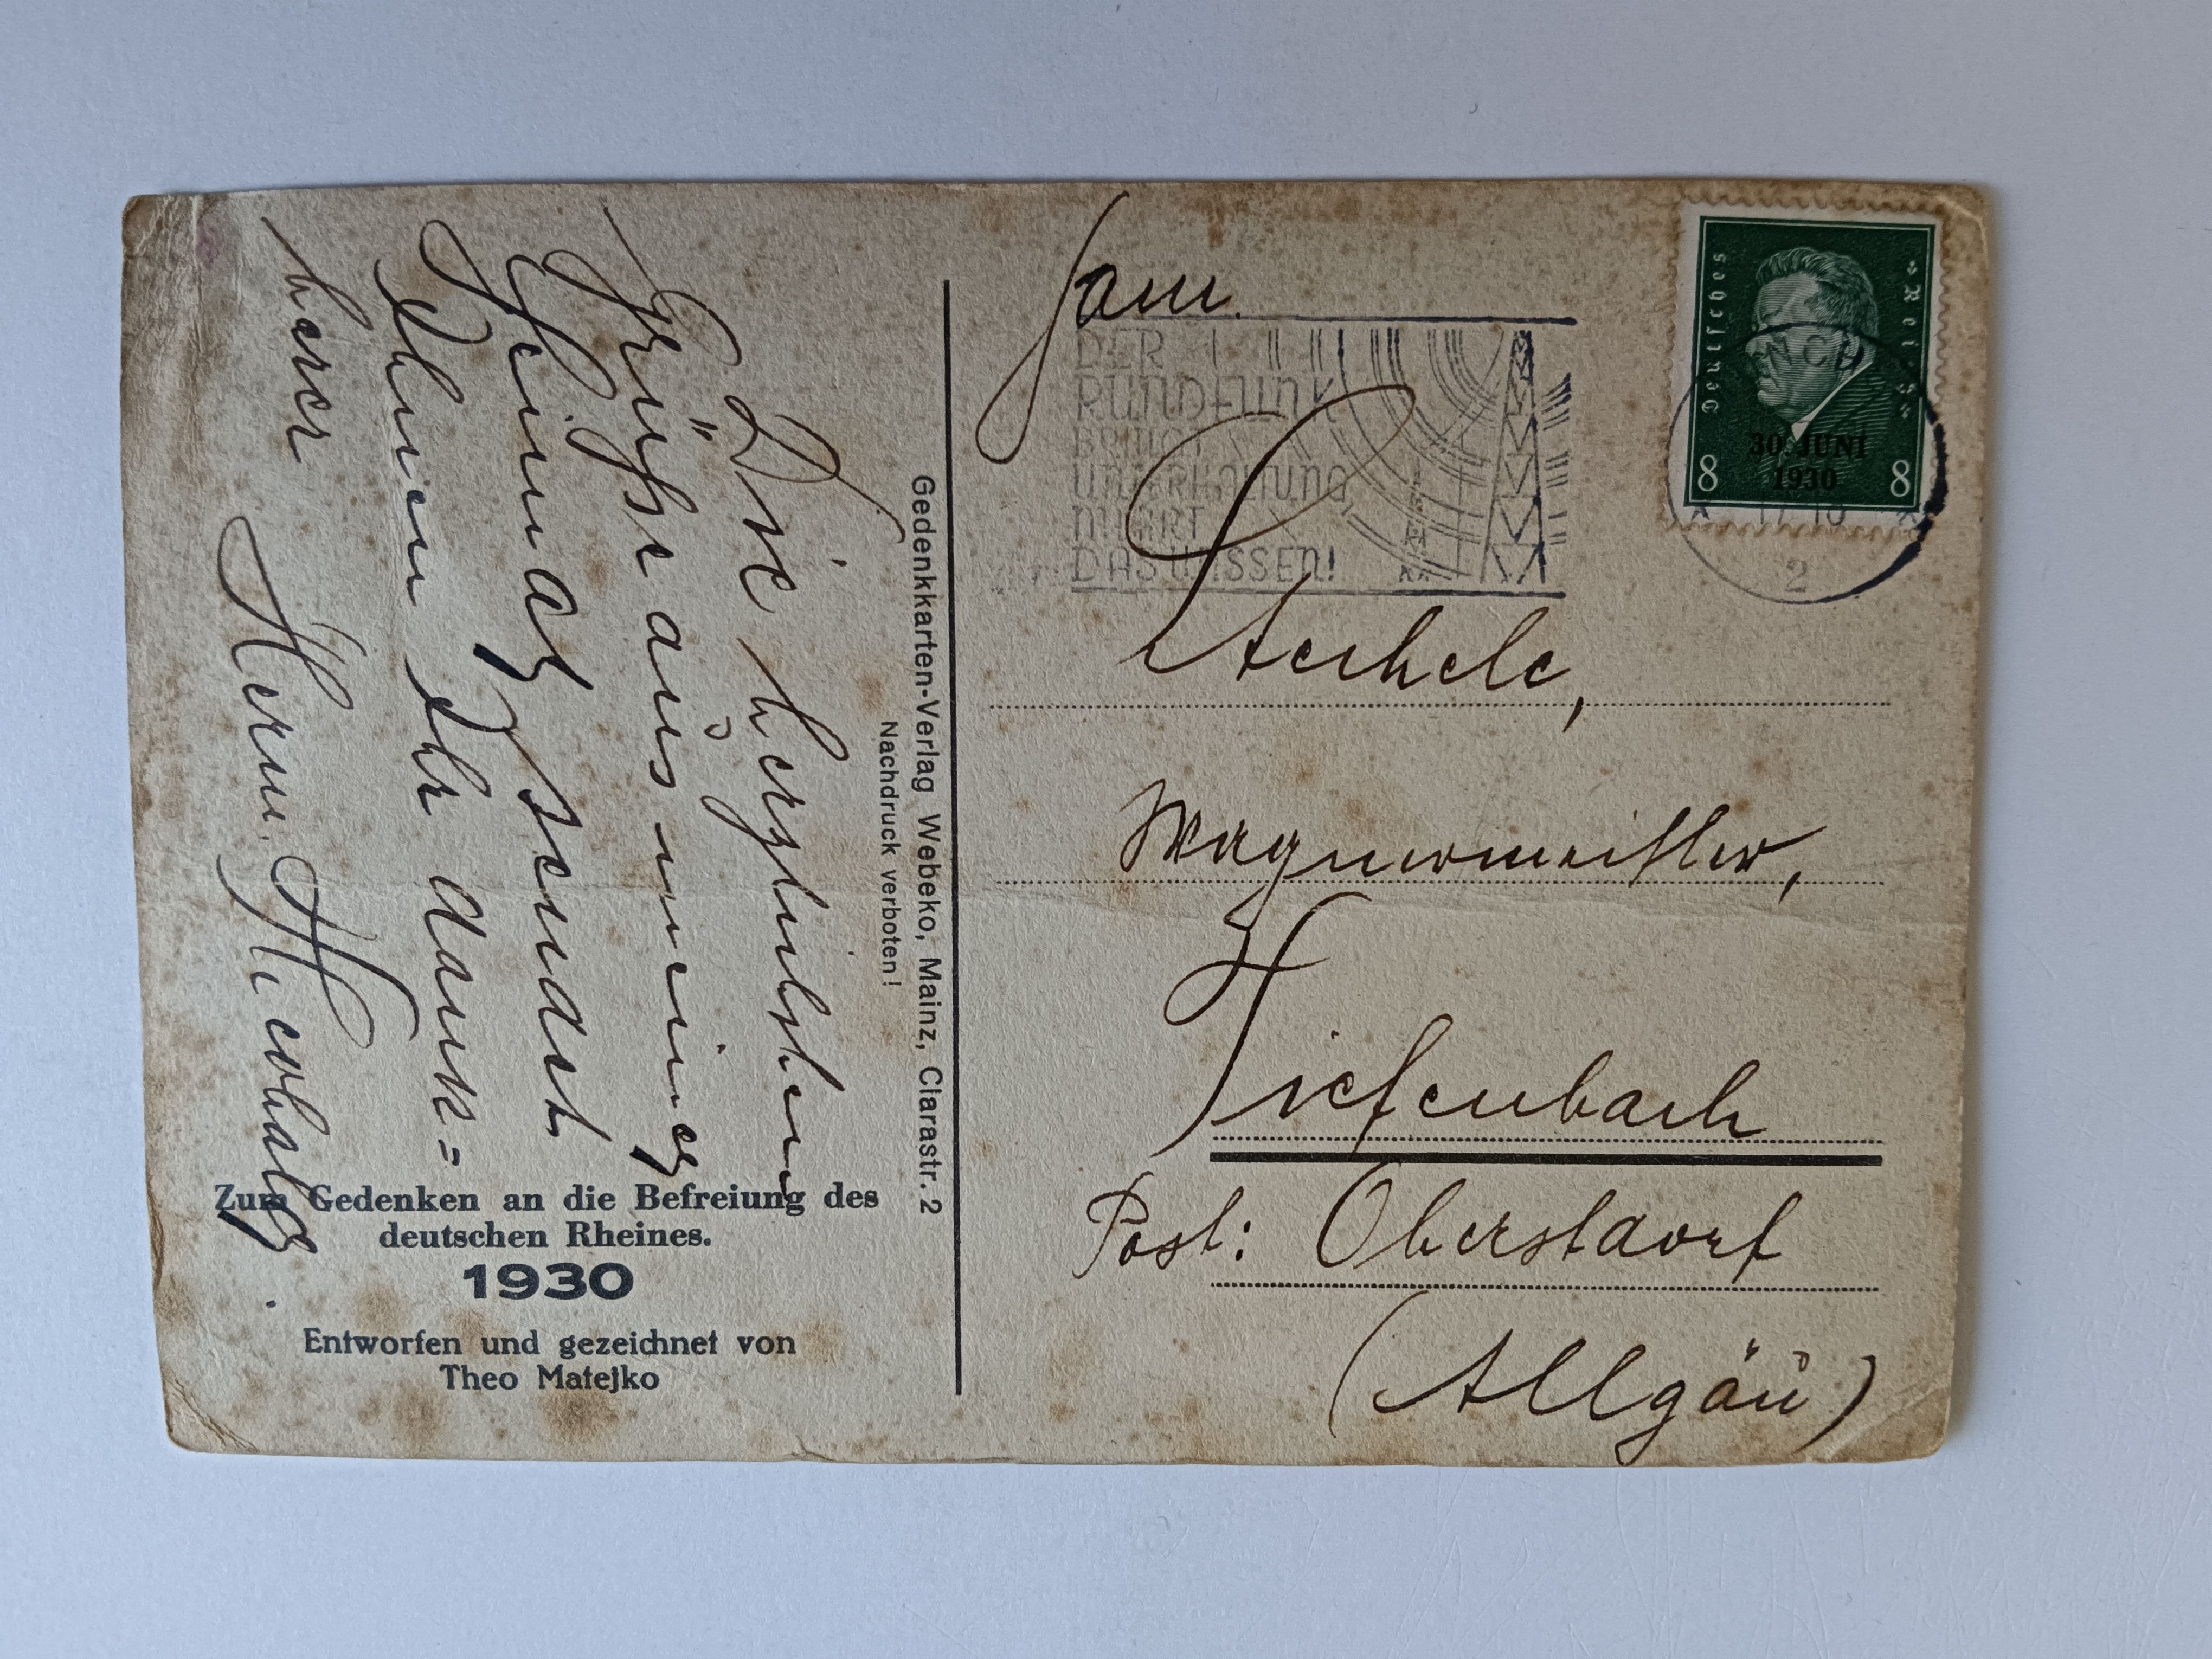 Die herzlichsten
Grüsse aus meiner
Heimat sendet
Ihnen Ihr dank=
barer
Herm.
Zum Gedenken an die Befreiung des
deutschen Rheines.
1930
Entworfen und gezeichnet von
Theo Matejko
Gedenkkarten-Verlag Webeko, Mainz, Clarastr. 2
Nachdruck verboten!
Fam.
Wagnermeister,
Tiefenbach
Post: Oberstdorf
(Allgäu)
DER
RUNDFUNK
BRINGT
UNTERHALTUNG
MEHRT
DAS WISSEN!
Deutsches Reich
30. JUNI
1930
8 8
2